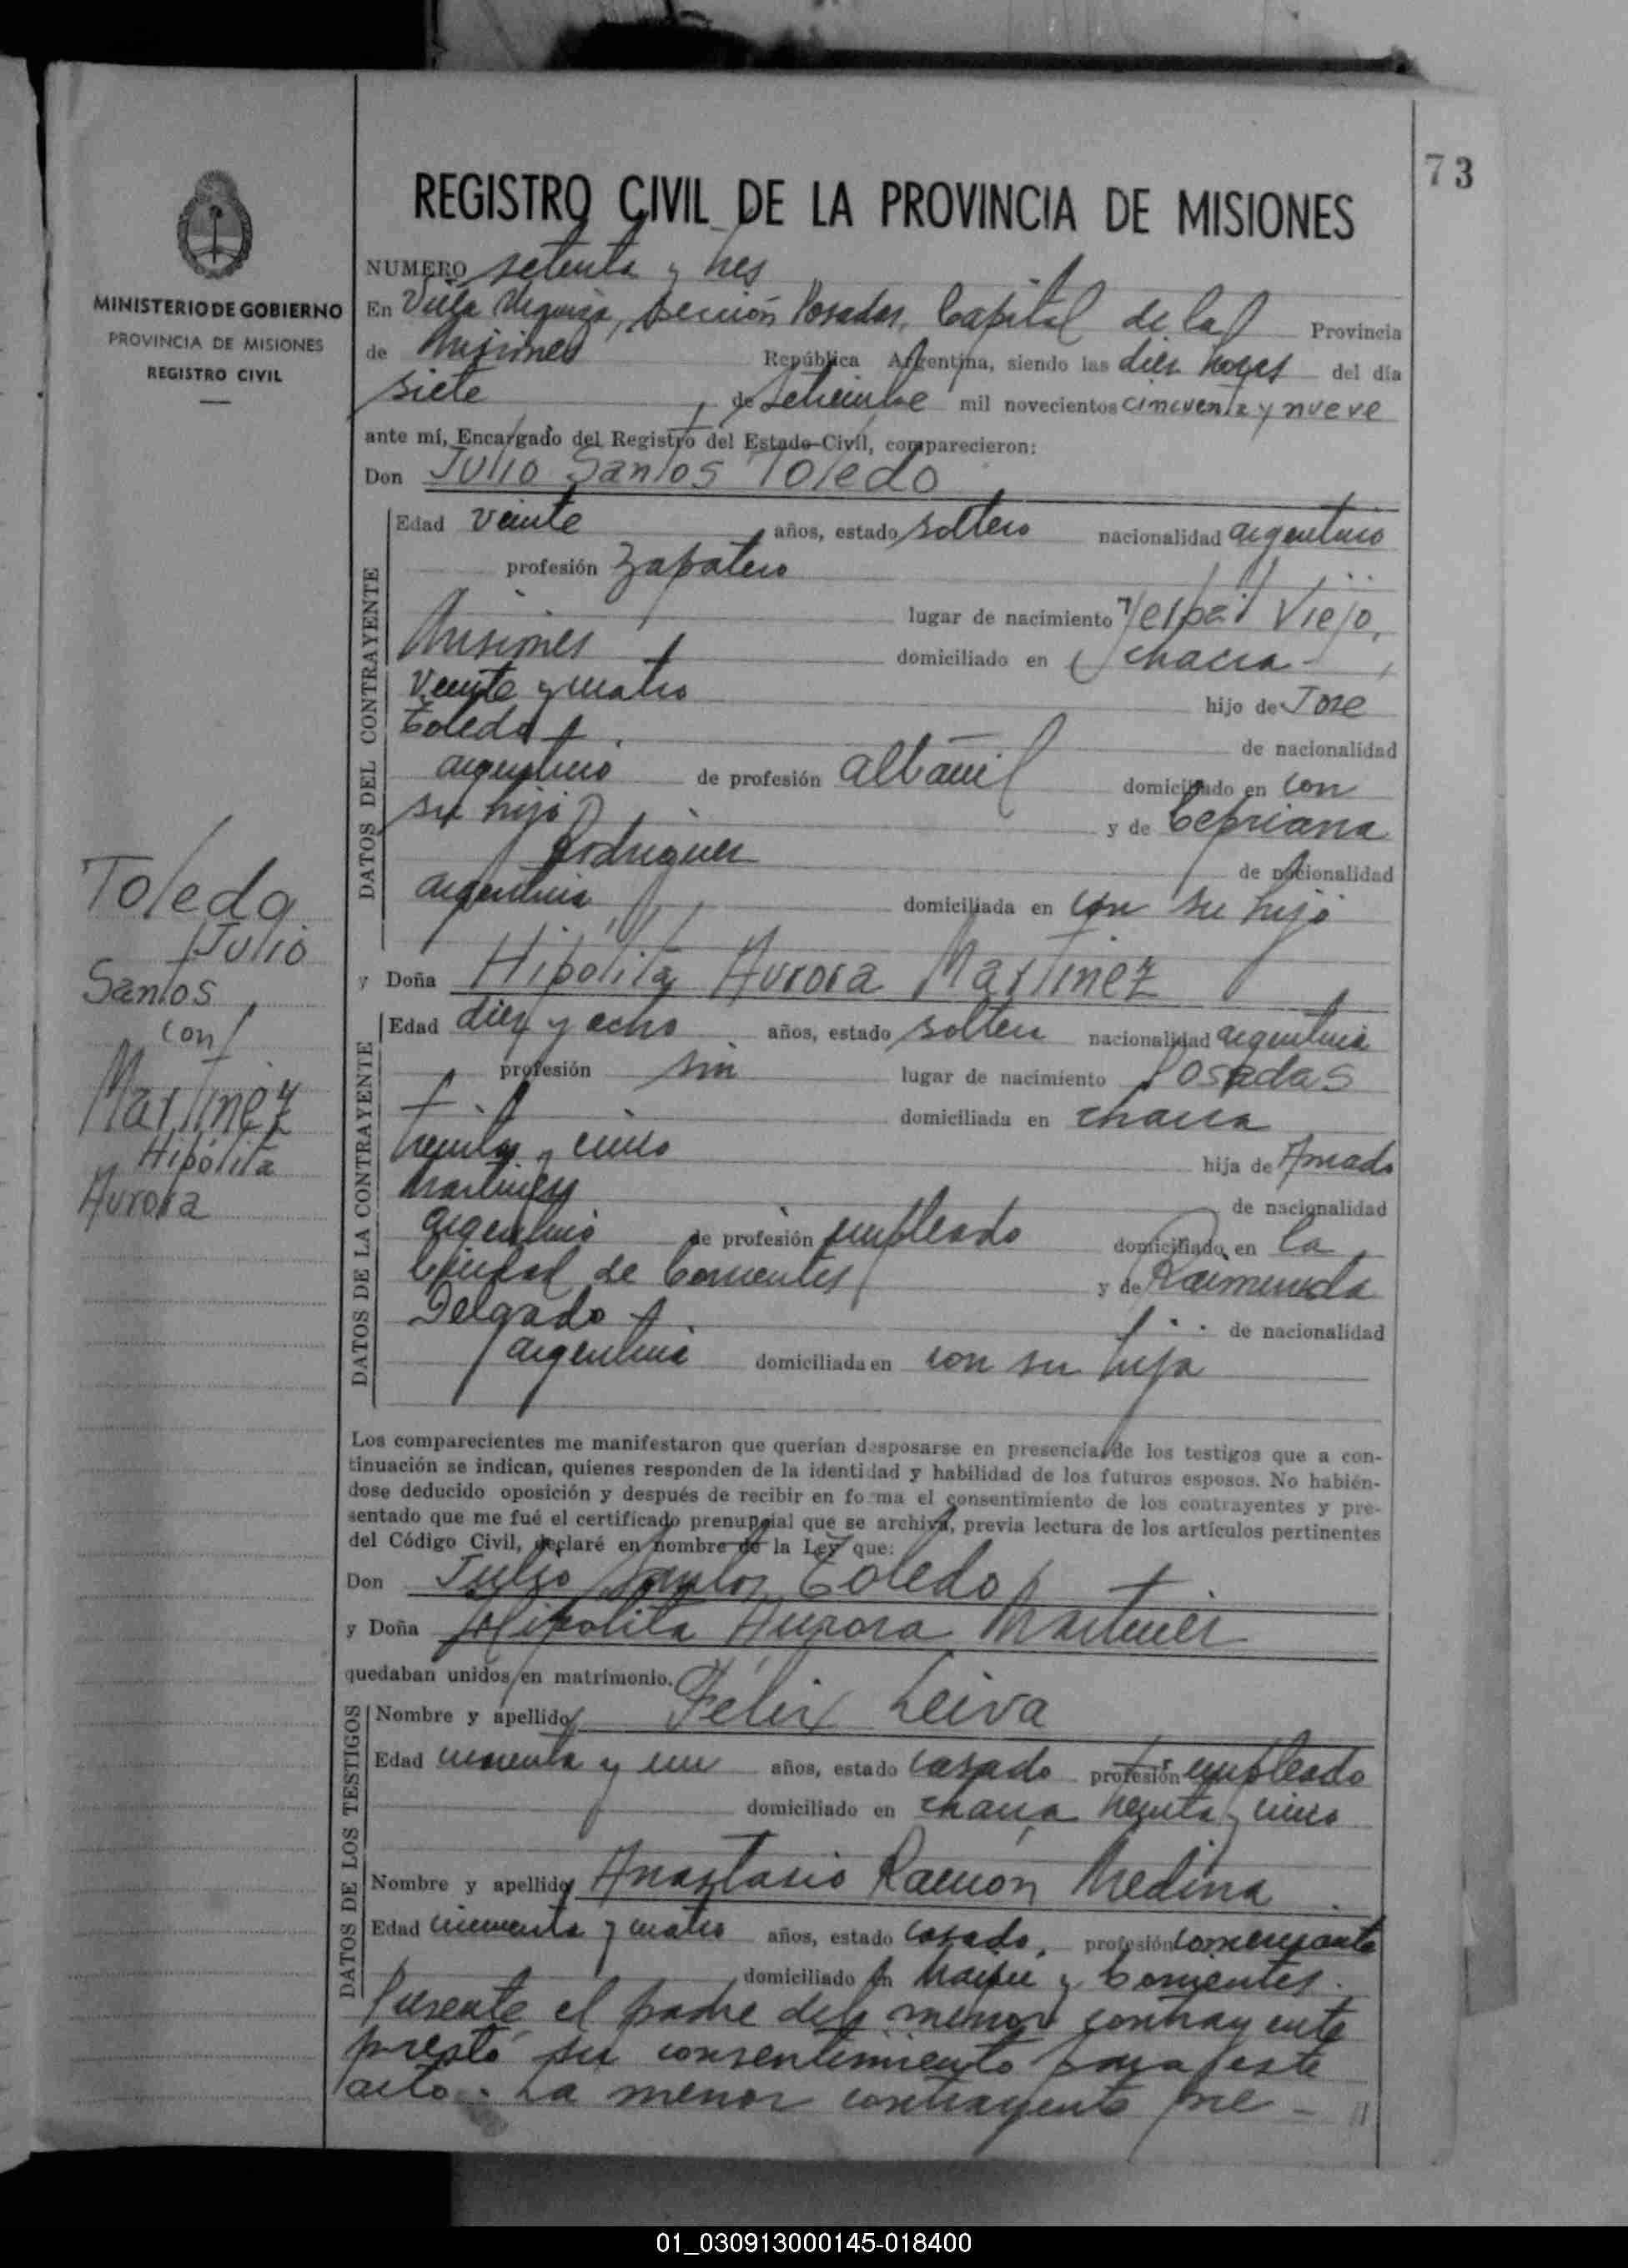 73
MINISTERIO DE GOBIERNO
PROVINCIA DE MISIONES
REGISTRO CIVIL
Toledo
Julio
Santos
con
Martinez
Hipólita
Aurora
REGISTRO CIVIL DE LA PROVINCIA DE MISIONES
NUMERO setenta y tres
En Villa Urquiza, sección Posadas, Capital de la Provincia
de Misiones República Argentina, siendo las diez horas del día
siete de setiembre mil novecientos cincuenta y nueve
ante mí, Encargado del Registro del Estado Civil, comparecieron:
Don Julio Santos Toledo
DATOS DEL CONTRAYENTE
Edad veinte años, estado soltero nacionalidad argentino
profesión zapatero
lugar de nacimiento Yerbal Viejo,
Misiones domiciliado en chacra
veinte y cuatro hijo de José
Toledo de nacionalidad
argentino de profesión albañil domiciliado en con
su hijo y de Cepriana
Rodriguez de nacionalidad
argentina domiciliada en con su hijo
y Doña Hipólita Aurora Martinez
DATOS DE LA CONTRAYENTE
Edad diez y ocho años, estado soltera nacionalidad argentina
profesión sin lugar de nacimiento Posadas
domiciliada en chacra
treinta y cinco hija de Amado
Martinez de nacionalidad
argentino de profesión empleado domiciliado en la
Ciudad de Corrientes y de Raimunda
Delgado de nacionalidad
argentina domiciliada en con su hija
Los comparecientes me manifestaron que querían desposarse en presencia de los testigos que a con-
tinuación se indican, quienes responden de la identidad y habilidad de los futuros esposos. No habién-
dose deducido oposición y después de recibir en forma el consentimiento de los contrayentes y pre-
sentado que me fué el certificado prenupcial que se archiva, previa lectura de los artículos pertinentes
del Código Civil, declaré en nombre de la Ley que:
Don Julio Santos Toledo
y Doña Hipólita Aurora Martinez
quedaban unidos en matrimonio.
DATOS DE LOS TESTIGOS
Nombre y apellido Félix Leiva
Edad cuarenta y un años, estado casado profesión empleado
domiciliado en chacra treinta y cinco
Nombre y apellido Anastasio Ramón Medina
Edad cincuenta y cuatro años, estado casado, profesión comerciante
domiciliado en Maipú y Corrientes.
Presente el padre del menor contrayente
prestó su consentimiento para este
acto. La menor contrayente pre - //
01_030913000145-018400